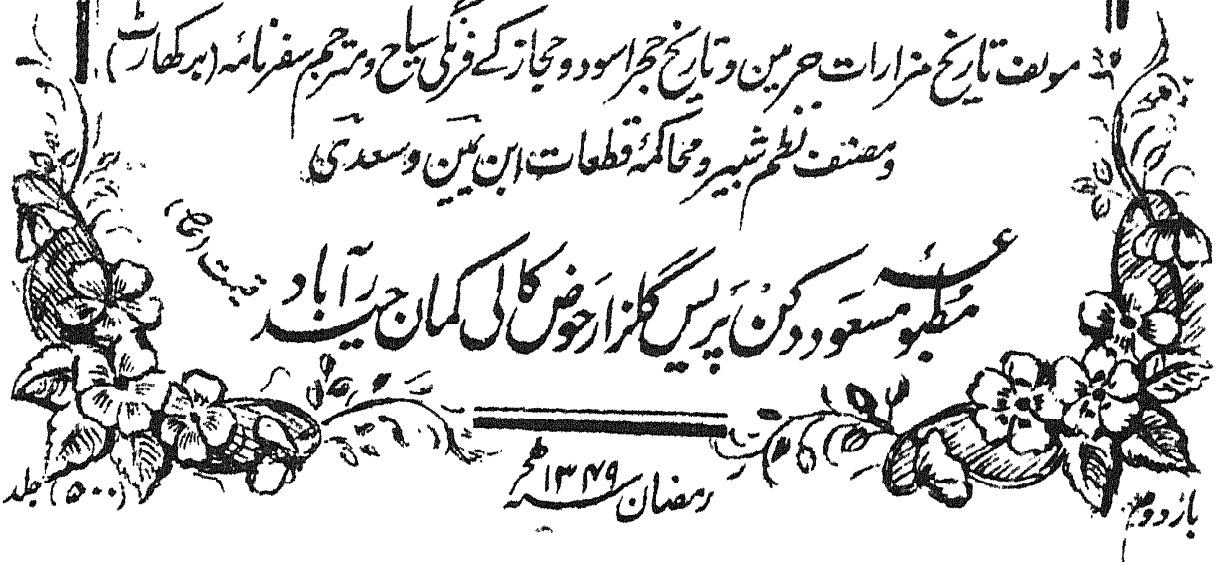 مولف تاریخ مزارات حرمین و تاریخ حجر اسود و حجاز کے فرنگی سیاح و مترجم سفرنامہ (برکھارٹ)
و مصنف نظم شبیر و محاکمۂ قطعات ابن یمین و سعدی
مطبوعہ مسعود دکن پریس گلزار حوض کالی کمان حیدرآباد
قیمت
رمضان ۱۳۴۹ھ
بار دوم
(۵۰۰) جلد